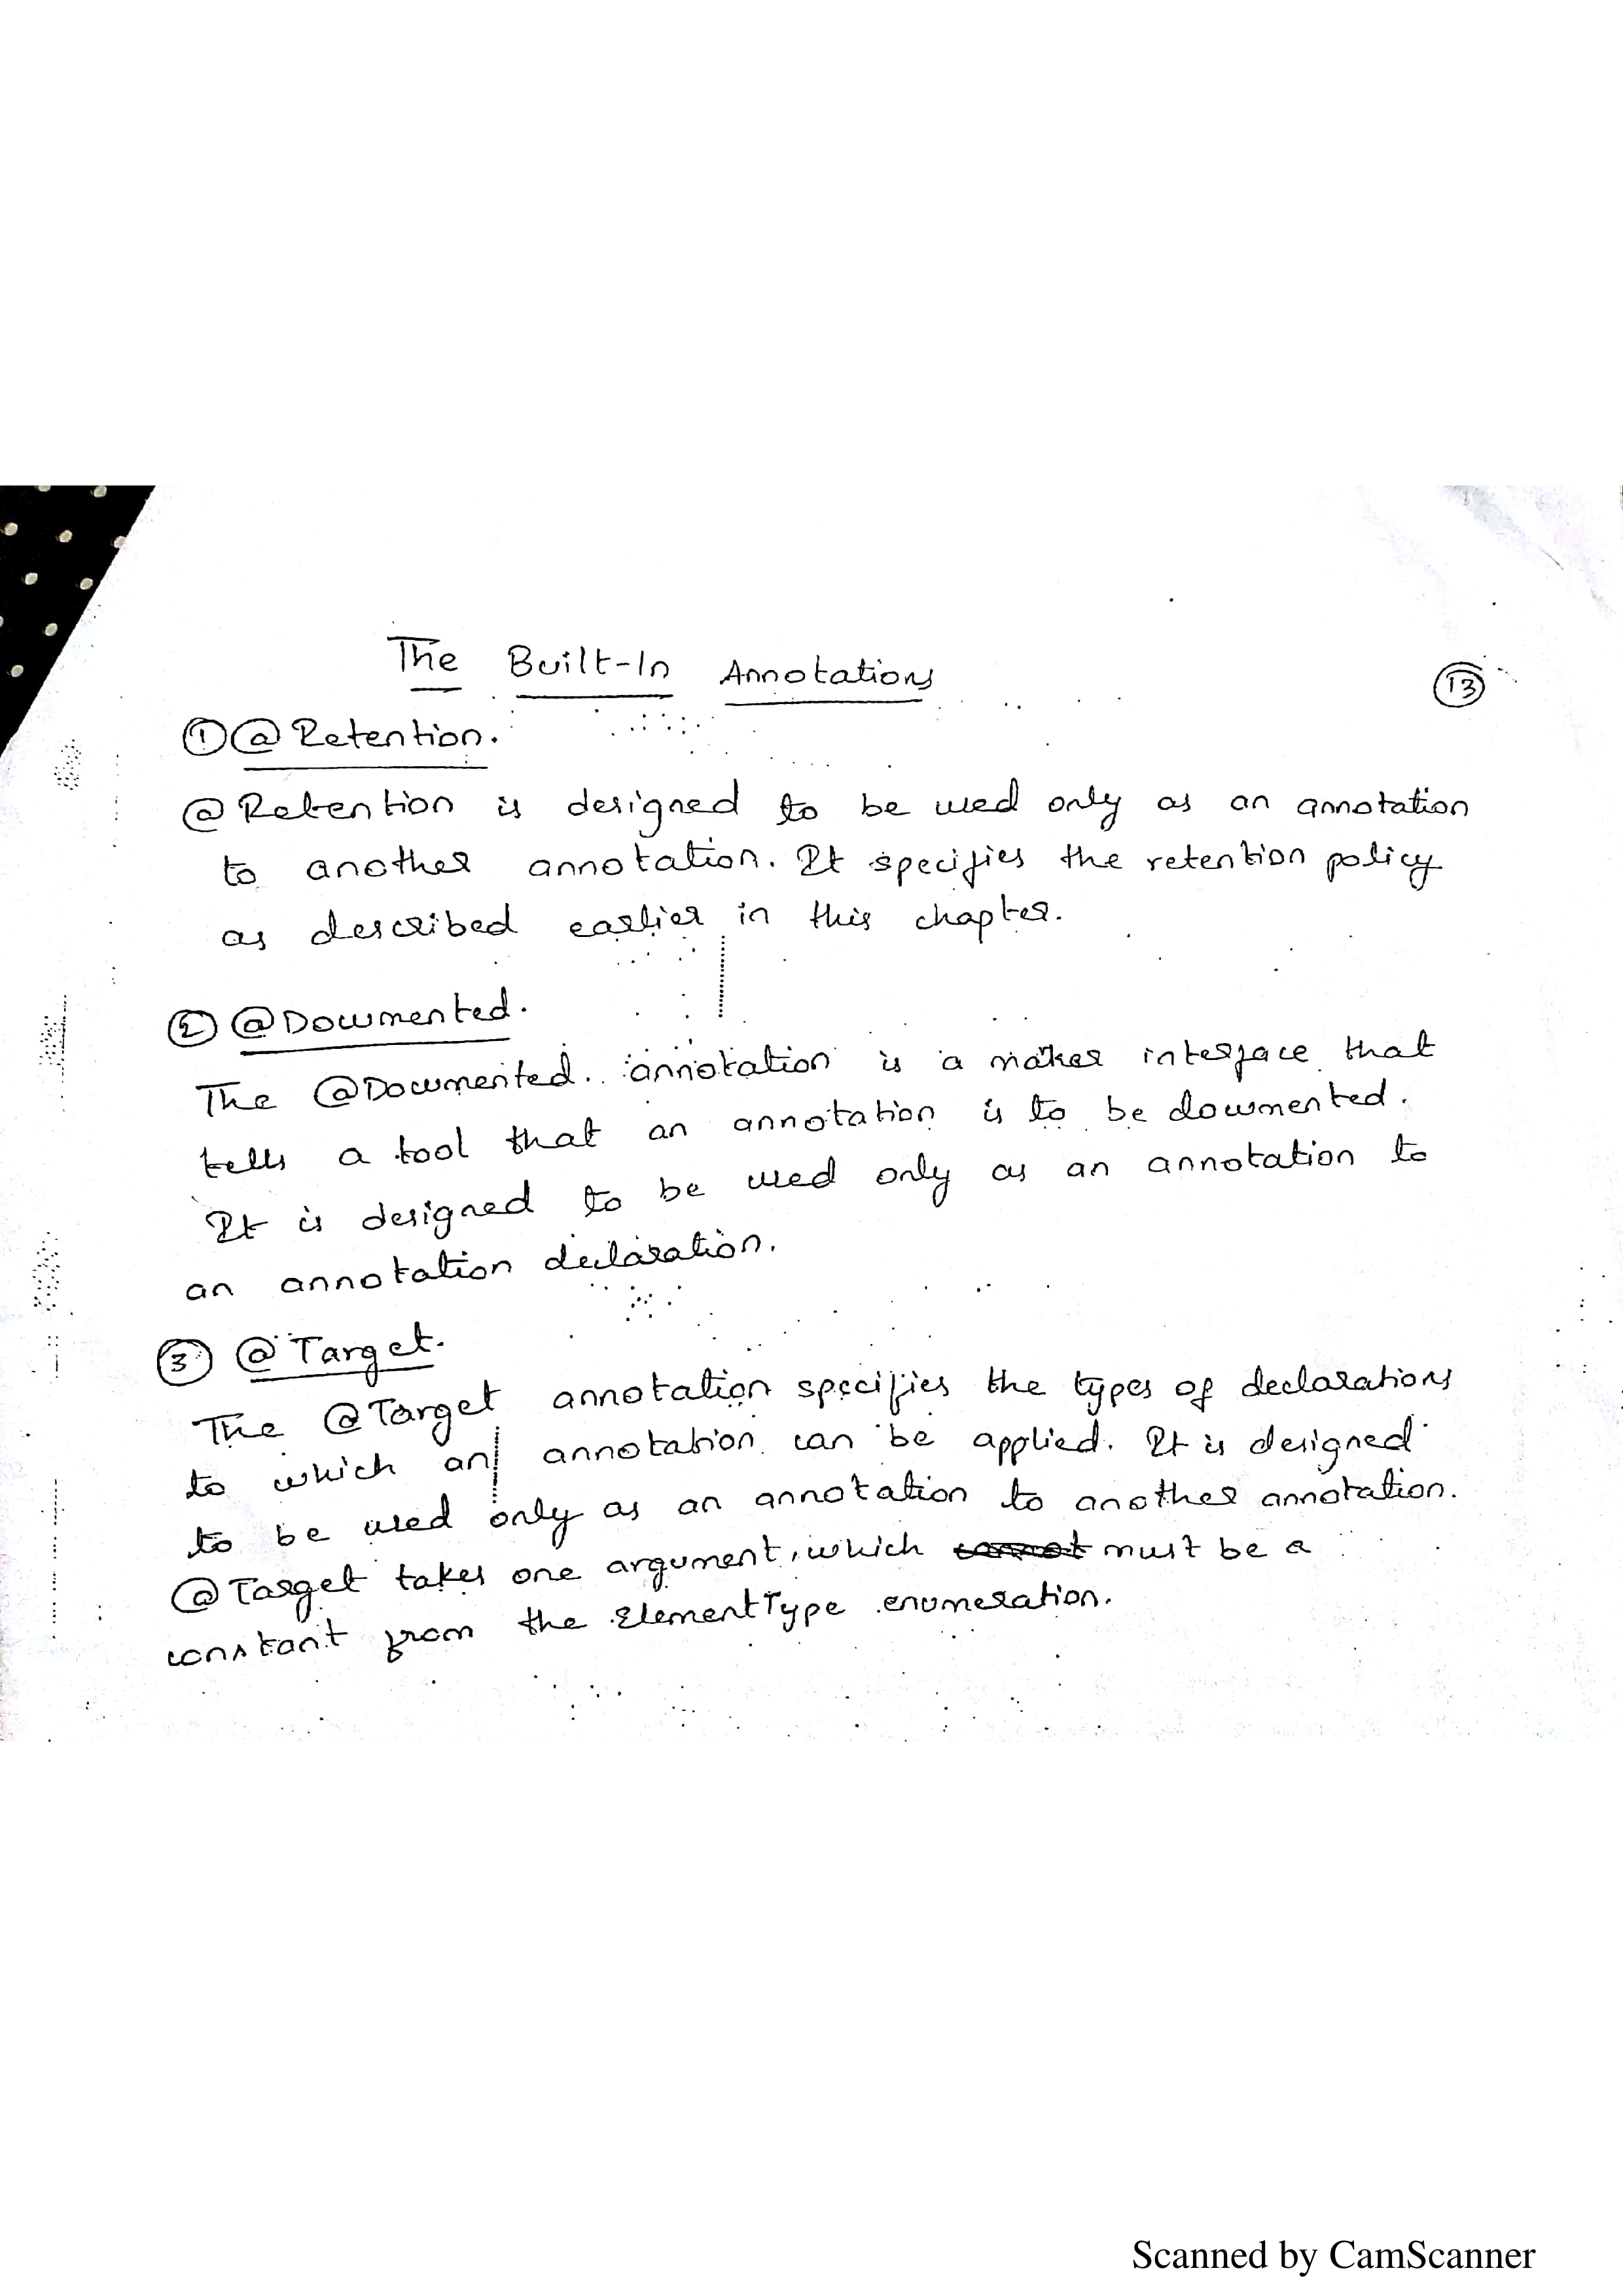 The Built-In Annotations
13
① @Retention.
@Retention is designed to be used only as an annotation
to another annotation. It specifies the retention policy
as described earlier in this chapter.
② @Documented.
The @Documented. annotation is a maker interface that
tells a tool that an annotation is to be documented.
It is designed to be used only as an annotation to
an annotation declaration.
③ @Target.
The @Target annotation specifies the types of declarations
to which an annotation can be applied. It is designed
to be used only as an annotation to another annotation.
@Target takes one argument, which must be a
constant from the ElementType enumeration.
Scanned by CamScanner